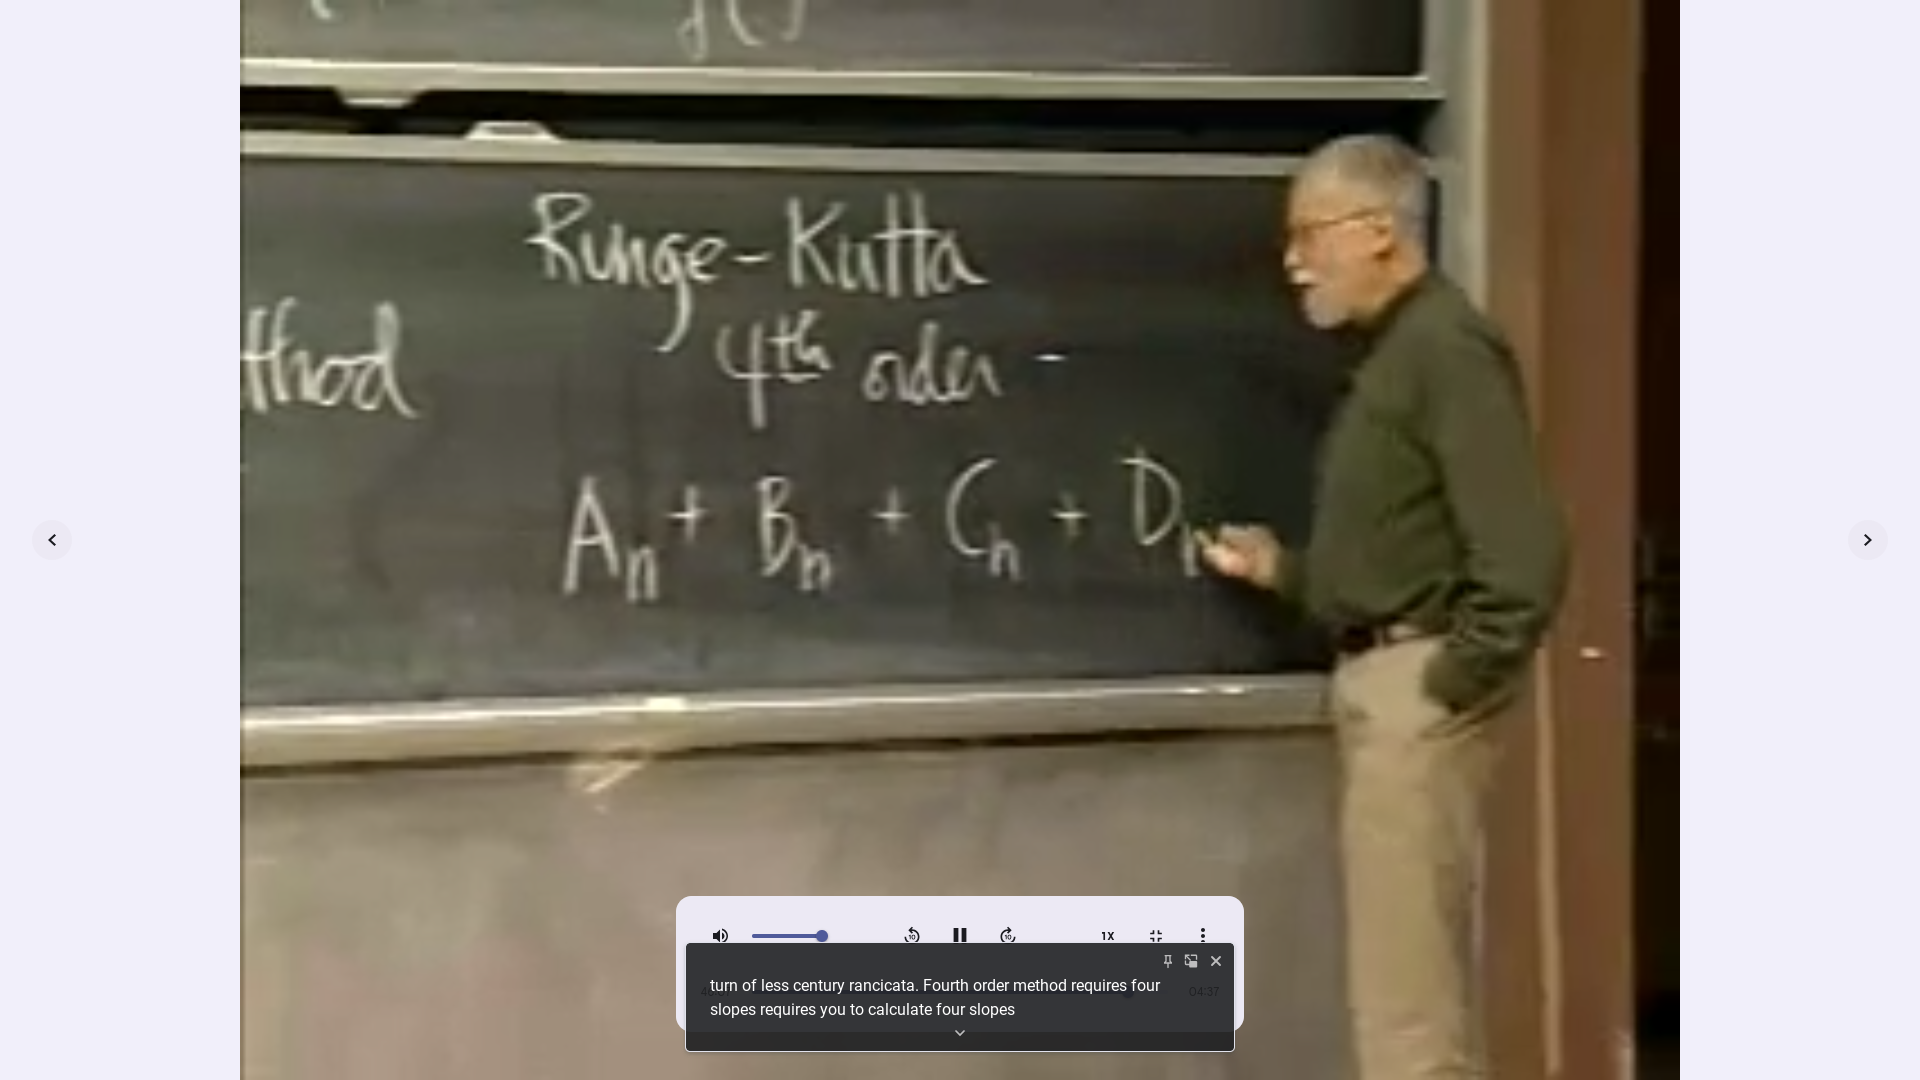 Runge-Kutta
thod
4th order -
An + Bn + Cn + Dn
1X
04:37
turn of less century rancicata. Fourth order method requires four
slopes requires you to calculate four slopes